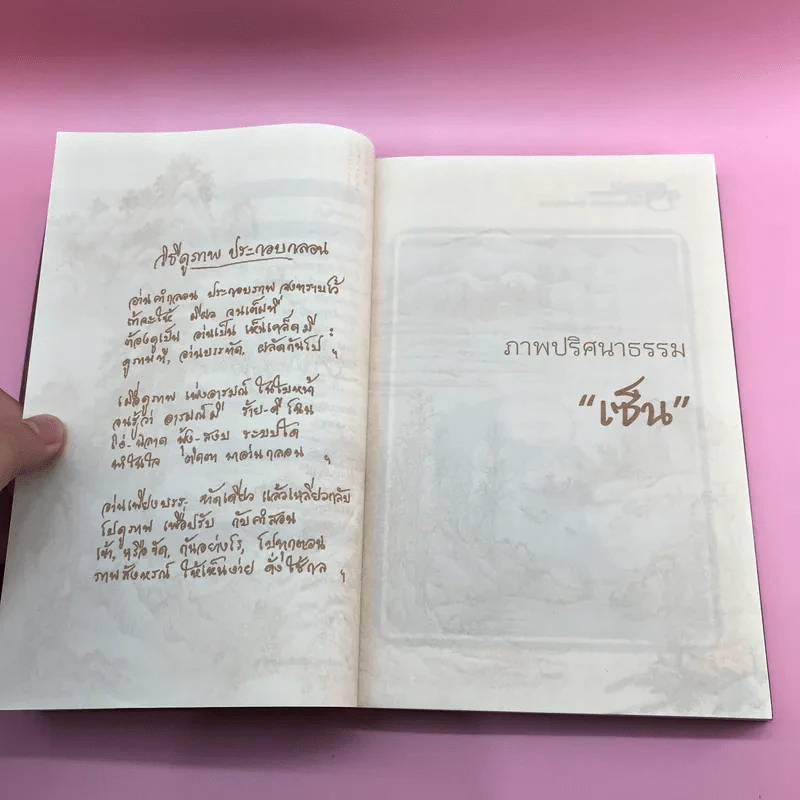 วิธีดูภาพ ประกอบกลอน
อ่านคำกลอน ประกอบภาพ จงทราบไว้
ถ้าจะให้ เสียว จนเต็มที่
ต้องดูเป็น อ่านเป็น เห็นเคล็ดมี :
ดูภาพที, อ่านบรรทัด, ผลัดกันไป ฯ
เมื่อดูภาพ เพ่งอารมณ์ ในใบหน้า
จนรู้ว่า อารมณ์มี ร้าย-ดี ไฉน
โง่-ฉลาด ฟุ้ง-สงบ ระบบใด
ทำในใจ
มาอ่านกลอน ฯ
อ่านเพียงบรร- ทัดเดียว แล้วเหลียวกลับ
ไปดูภาพ เพื่อปรับ กับคำสอน
เข้า, หรือขัด, กันอย่างไร, ไปทุกตอน
ภาพสังหรณ์ ให้เห็นง่าย ดั่งใช้กล ฯ
ภาพปริศนาธรรม
“เซ็น”